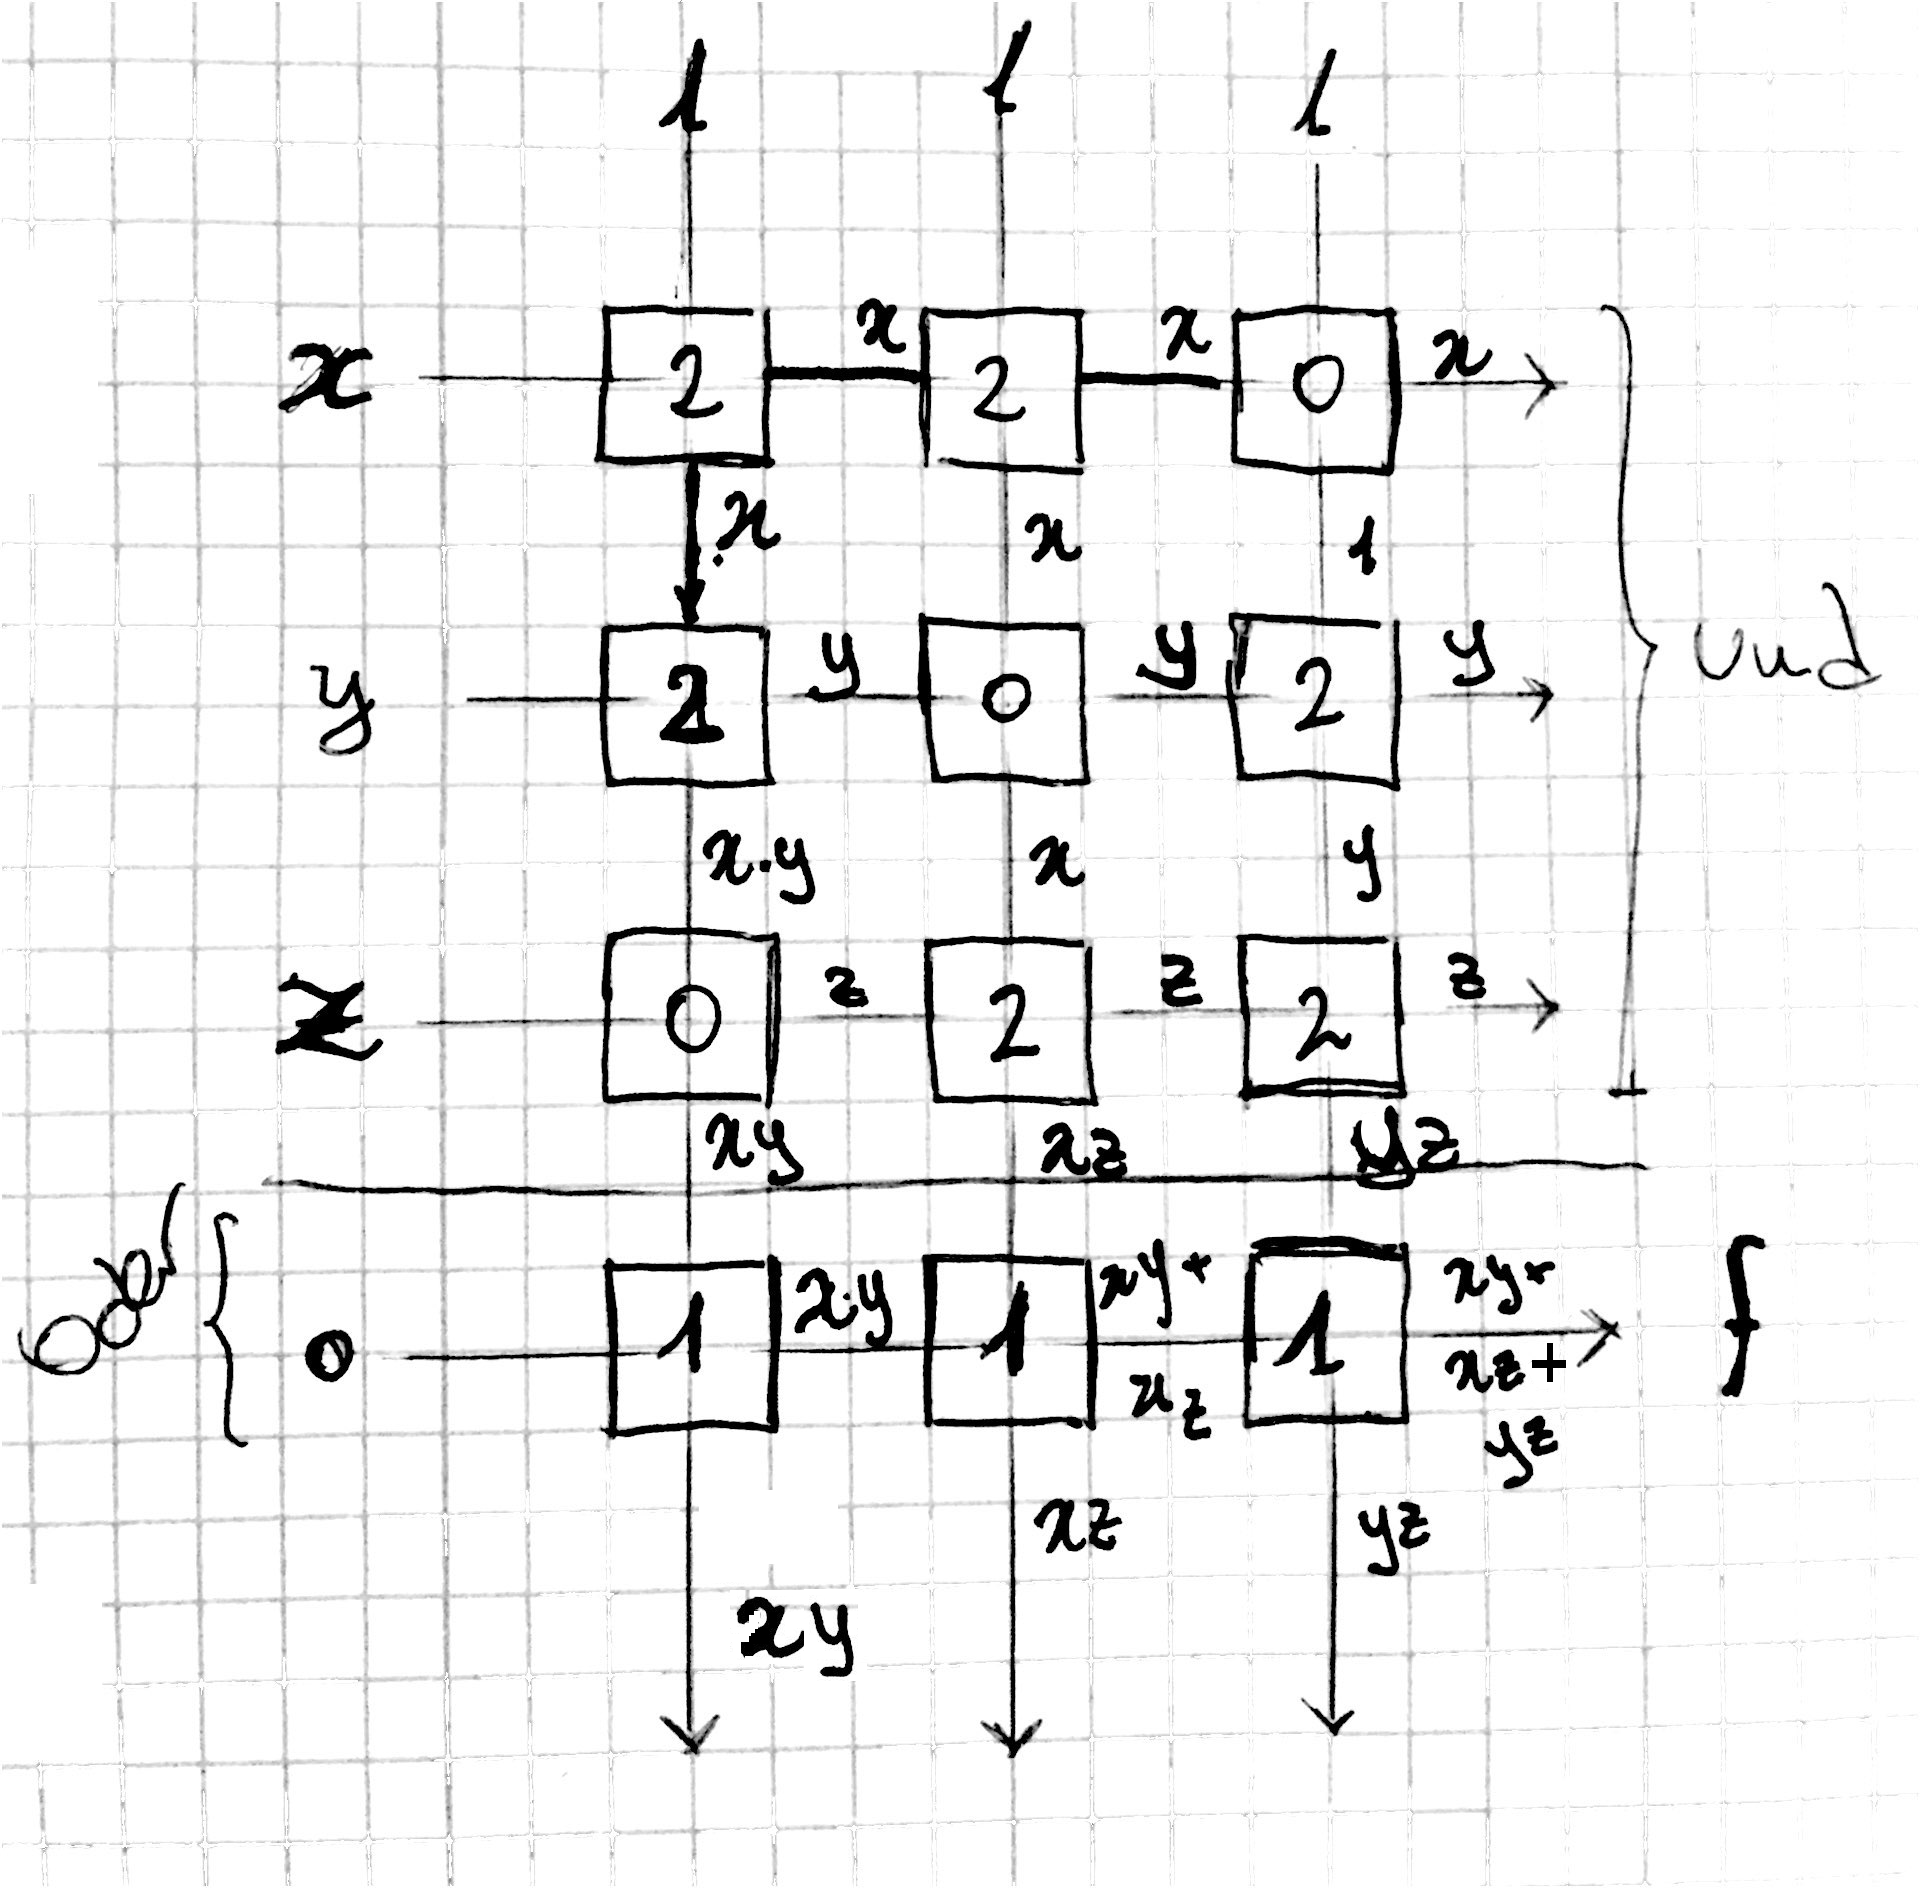 1 1 1
x 2 x 2 x 0 x
x x 1
y 2 y 0 y 2 y
Und
x.y x y
z 0 z 2 z 2 z
xy xz yz
Oder
0 1 x.y 1 xy+ 1 xy+ f
xz xz+
yz
xz yz
xy